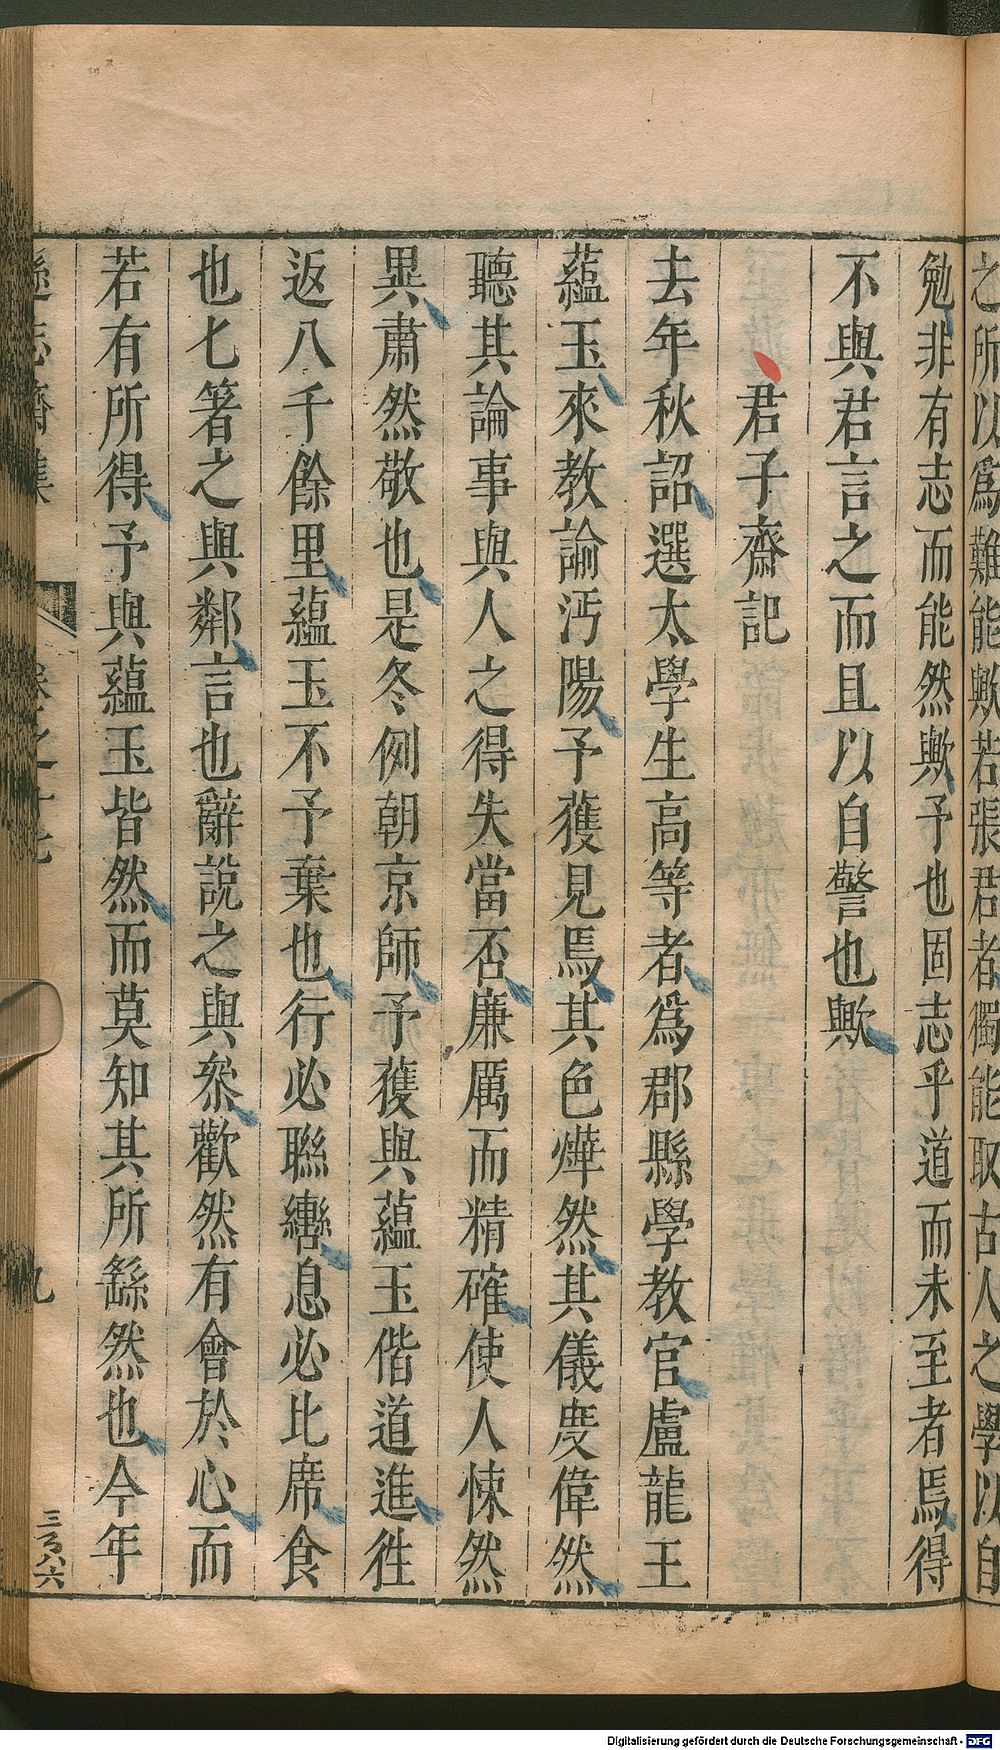 之所以爲難能歟若張君者獨能取古人之學以自
勉非有志而能然歟予也固志乎道而未至者焉得
不與君言之而且以自警也歟
君子齋記
去年秋詔選太學生高等者爲郡縣學教官盧龍王
蘊玉來教諭沔陽予獲見焉其色燁然其儀度偉然
聽其論事與人之得失當否廉厲而精確使人悚然
異肅然敬也是冬例朝京師予獲與蘊玉偕道進徃
返八千餘里蘊玉不予棄也行必聯轡息必比席食
也匕箸之與鄰言也辭說之與衆歡然有會於心而
若有所得予與蘊玉皆然而莫知其所繇然也今年
遜志齋集 卷之十七 九
三百八六
Digitalisierung gefördert durch die Deutsche Forschungsgemeinschaft - DFG